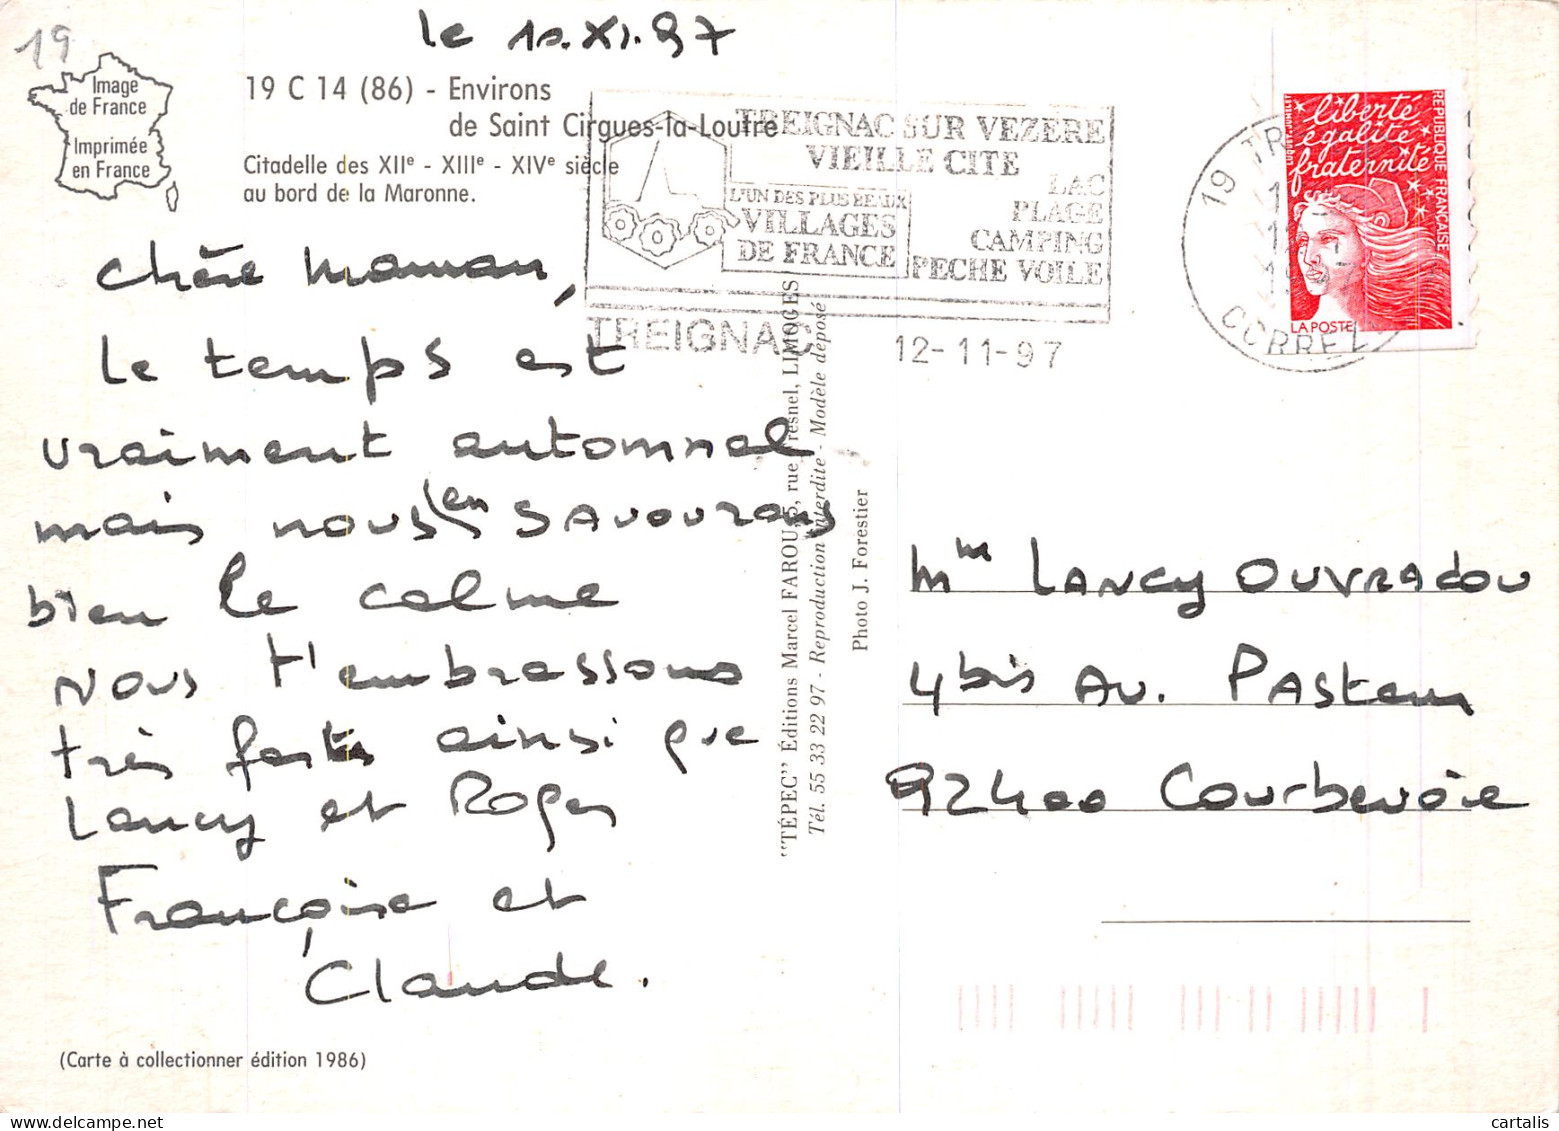 le 10.XI.97
19
Image
de France
Imprimée
en France
19 C 14 (86) - Environs
de Saint Cirgues-la-Loutre
Citadelle des XIIe - XIIIe - XIVe siècle
au bord de la Maronne.
TREIGNAC SUR VEZERE
VIEILLE CITE
L'UN DES PLUS BEAUX
VILLAGES
DE FRANCE
LAC
PLAGE
CAMPING
PECHE VOILE
TREIGNAC 12-11-97
19 TR
CORREZ
liberté
égalité
fraternité
RÉPUBLIQUE FRANÇAISE
LA POSTE
Chère Maman,
Le temps est
vraiment automnal
mais nous en savourons
bien le calme
Nous t'embrassons
très forts ainsi que
Lancy et Roger
Françoise et
Claude.
"TÉPEC" Éditions Marcel FAROU, 35, rue Fresnel, LIMOGES
Tél. 55 33 22 97 - Reproduction interdite - Modèle déposé
Photo J. Forestier
Mme LANCY OUVRADOU
4bis Av. Pasteur
92400 Courbevoie
(Carte à collectionner édition 1986)
cartalis